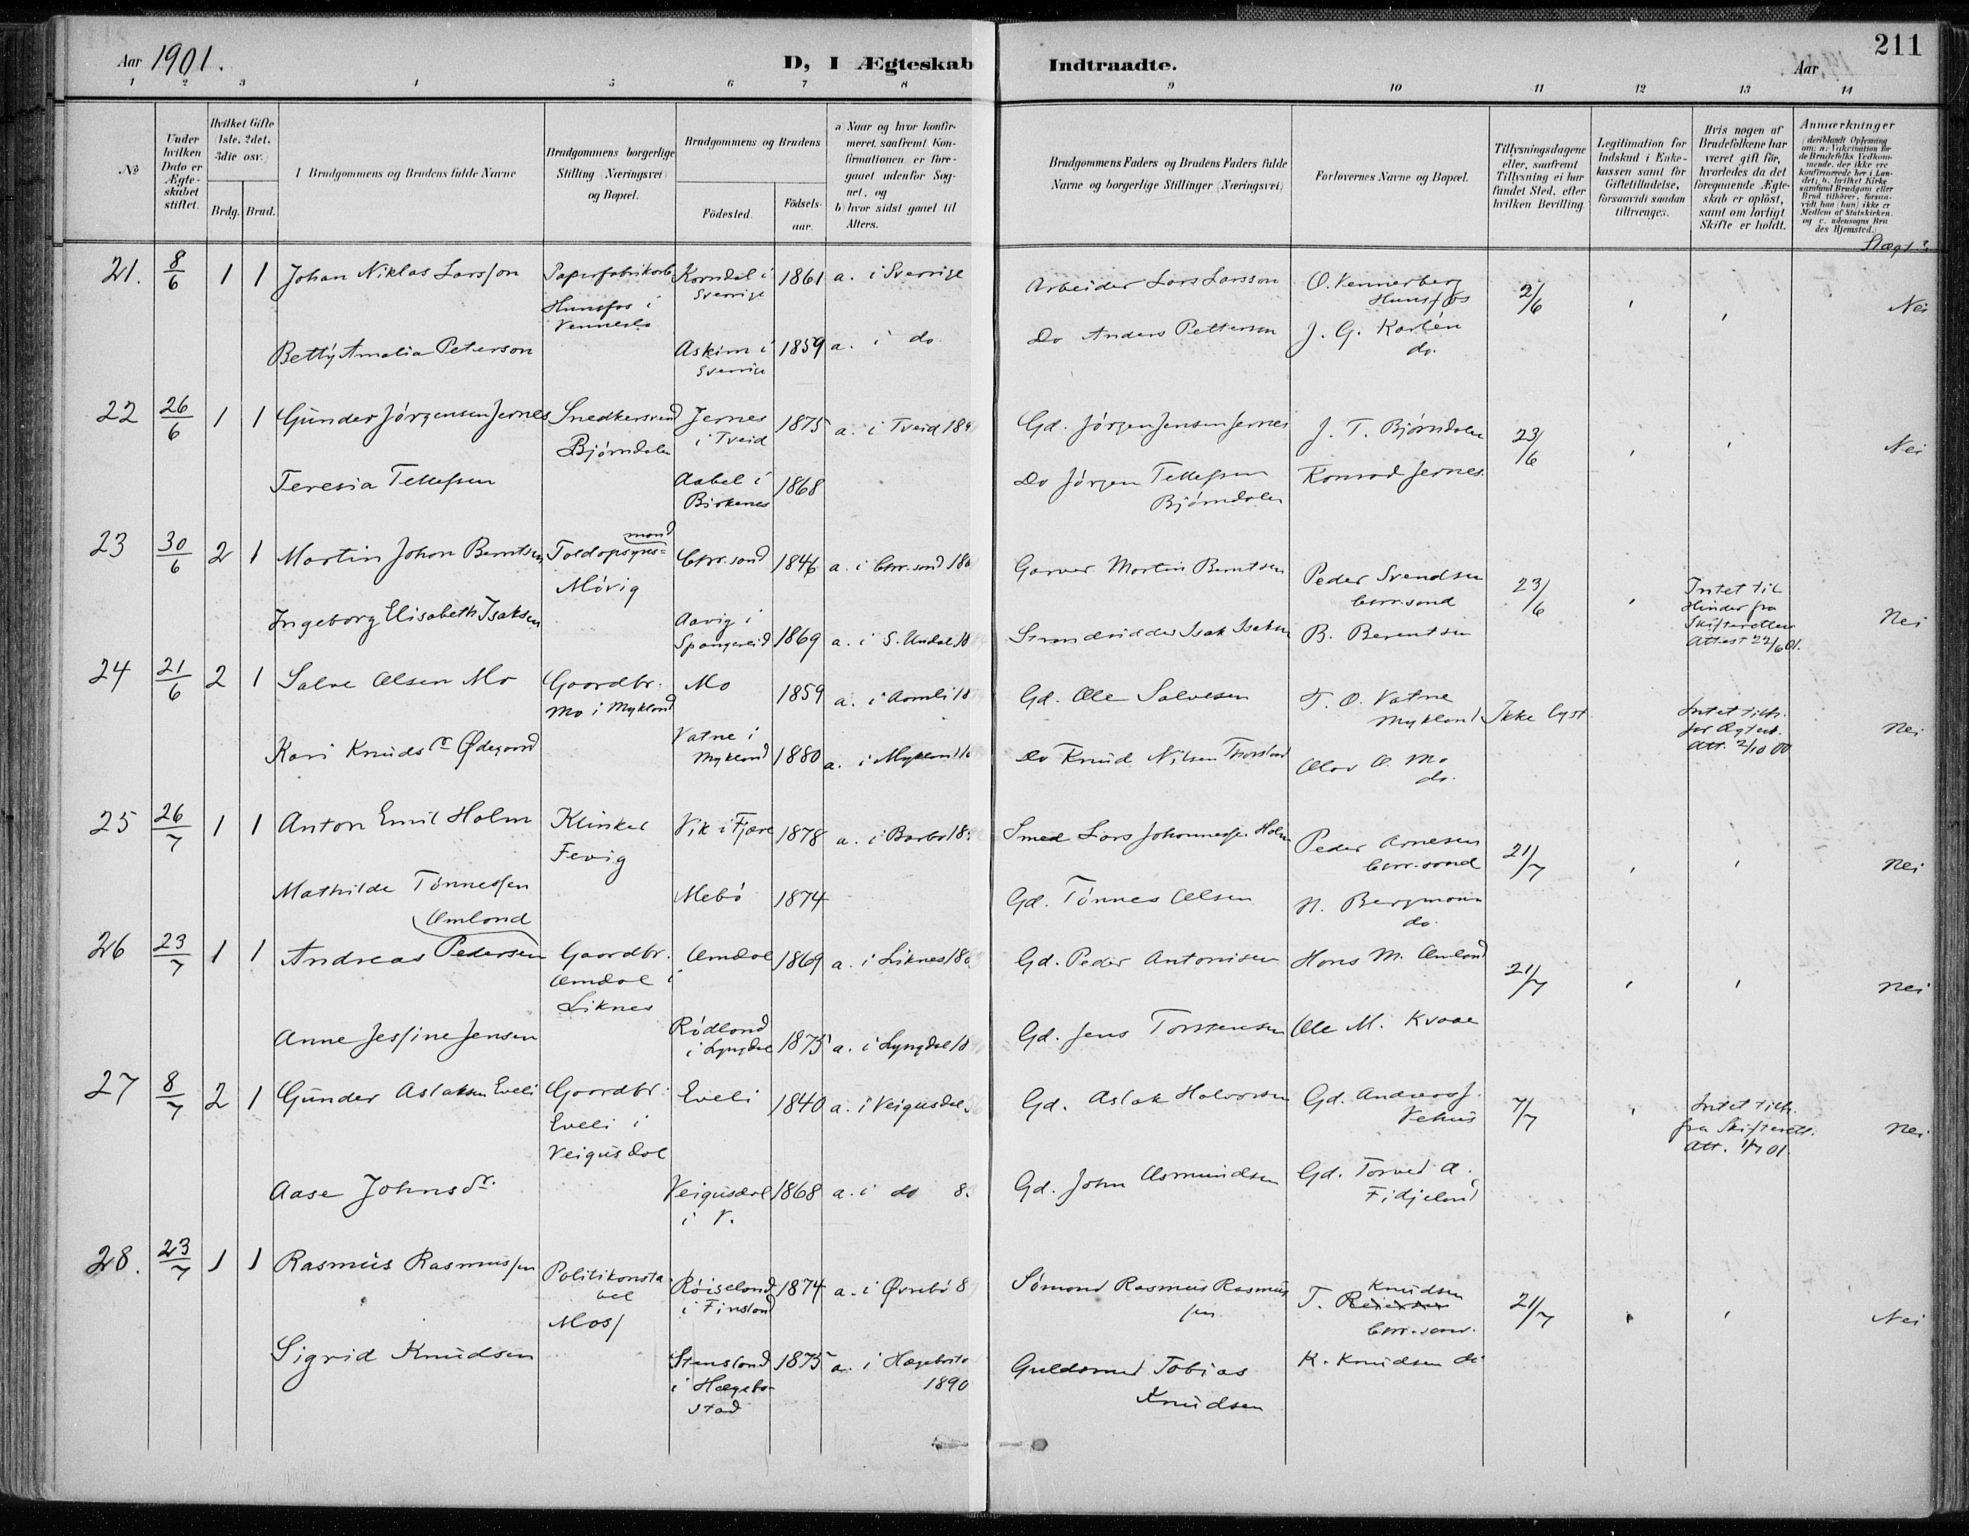 211
Aar 1901.
D, I Ægteskab Indtraadte.
Aar
1 2 3 4 5 6 7 8 9 10 11 12 13 14
No
Under hvilken Dato er Ægteskabet stiftet.
Hvilket Gifte (1ste, 2det, 3die osv.)
Brdg. Brud.
Brudgommens og Brudens fulde Navne
Brudgommens borgerlige Stilling (Næringsvei) og Bopæl.
Brudgommens og Brudens
Fødested.
Fødselsaar.
a) Naar og hvor konfirmeret, saafremt Konfirmationen er foregaaet udenfor Sognet, og
b) hvor sidst gaaet til Alters.
Brudgommens Faders og Brudens Faders fulde Navne og borgerlige Stillinger (Næringsvei)
Forlovernes Navne og Bopæl.
Tillysningsdagene eller, saafremt Tillysning ei har fundet Sted, efter hvilken Bevilling.
Legitimation for Indskud i Enkekassen samt for Giftetilladelse, forsaavidt saadan tiltrænges.
Hvis nogen af Brudefolkene har været gift før, hvorledes da det foregaaende Ægteskab er opløst, samt om lovligt Skifte er holdt.
Anmærkninger
Slægt?
21. 8/6 1 1 Johan Niklas Larsson Papirfabrikarb. Korndal i Sverrige 1861 a. i Sverrige Arbeider Lars Larsson O. Vennerberg Hunsfos 2/6 Nei
Hunsfos i Vennesla
Betty Amalia Peterson Askim i Sverrige 1859 a. i do Do Anders Petterson J. G. Karlén do.
22 26/6 1 1 Gunder Jørgensen Jernes Snedkersvend Bjørndalen Jernes i Tveid 1875 a. i Tveid 189 Gd. Jørgen Jensen Jernes J. T. Bjørndalen 23/6 Nei
Teresia Tellefsen Aabel i Birkenes 1868 Do Jørgen Tellefsen Bjørndalen Konrad Jernes.
23 30/6 2 1 Martin Johan Berntsen Toldopsynsmand Møvig Chrr.sand 1846 a. i Chrr.sand 186 Garver Martin Berntsen Peder Svendsen Chrr.sand 23/6 Intet til Hinder fra Skifteretten Attest 22/6 01. Nei
Ingeborg Elisabeth Isaksen Aavig i Spangereid 1869 a. i S. Undal 18 Strandsidder Isak Isaksen B. Berentsen
24 21/6 2 1 Salve Olsen Mo Gaardbr. Mo i Mykland Mo 1859 a. i Aamli 18 Gd. Ole Salvesen T. O. Vatne Mykland Ikke lyst Intet tilh. for Ægtesk. Att. 2/10 00 Nei
Kari Knudsdr Ødegaard Vatne i Mykland 1880 a. i Mykland 18 Do Knud Nilsen Olav O. Mo do.
25 26/7 1 1 Anton Emil Holm Klinker Fevig Vik i Fjære 1878 a. i Barbo 189 Smed Lars Johannessen Holm Peder Arnesen Chrr.sand 21/7 Nei
Mathilde Tønnessen Mebø 1874 Gd. Tønnes Olsen N. Bergmann do.
26 23/7 1 1 Andreas Pedersen Omland Gaardbr. Omdal i Liknes Omdal 1869 a. i Liknes 18 Gd. Peder Antonisen Hans M. Omland 21/7 Nei
Anne Jessine Jensen Rødland i Lyngdal 1875 a. i Lyngdal 18 Gd. Jens Torstensen Ole M. Kvaae
27 8/7 2 1 Gunder Aslaksen Eveli Gaardbr. Eveli i Veigusdal Eveli 1840 a. i Veigusdal Gd. Aslak Halvorsen Gd. Andreas J. Vehus 7/7 Intet tilh. fra Skifterett. Att. 01. Nei
Aase Johnsdr. Veigusdal i V. 1868 a. i do 8. Gd. John Asmundsen Gd. Torved A. Fidjeland
28. 23/7 1 1 Rasmus Rasmussen Politikonstabel Moss Røiseland i Finsland 1874 a. i Øvrebø 8 Sømand Rasmus Rasmussen T. Knudsen Chrr.sand. 21/7 Nei
Sigrid Knudsen Stensland i Hægebostad 1875 a. i Hægebost 1890 Guldsmed Tobias Knudsen K. Knudsen do